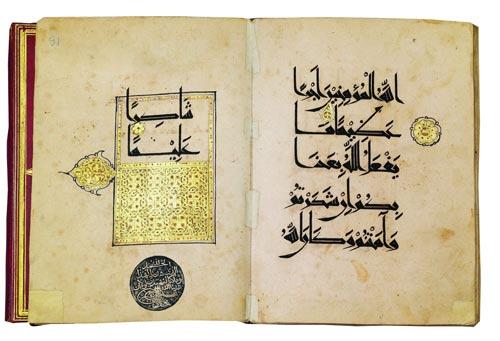 الله المؤمنين اجرا
عظيما ما
يفعل الله بعذا
بكم ان شكرتم
وآمنتم وكان الله
شاكرا
عليما